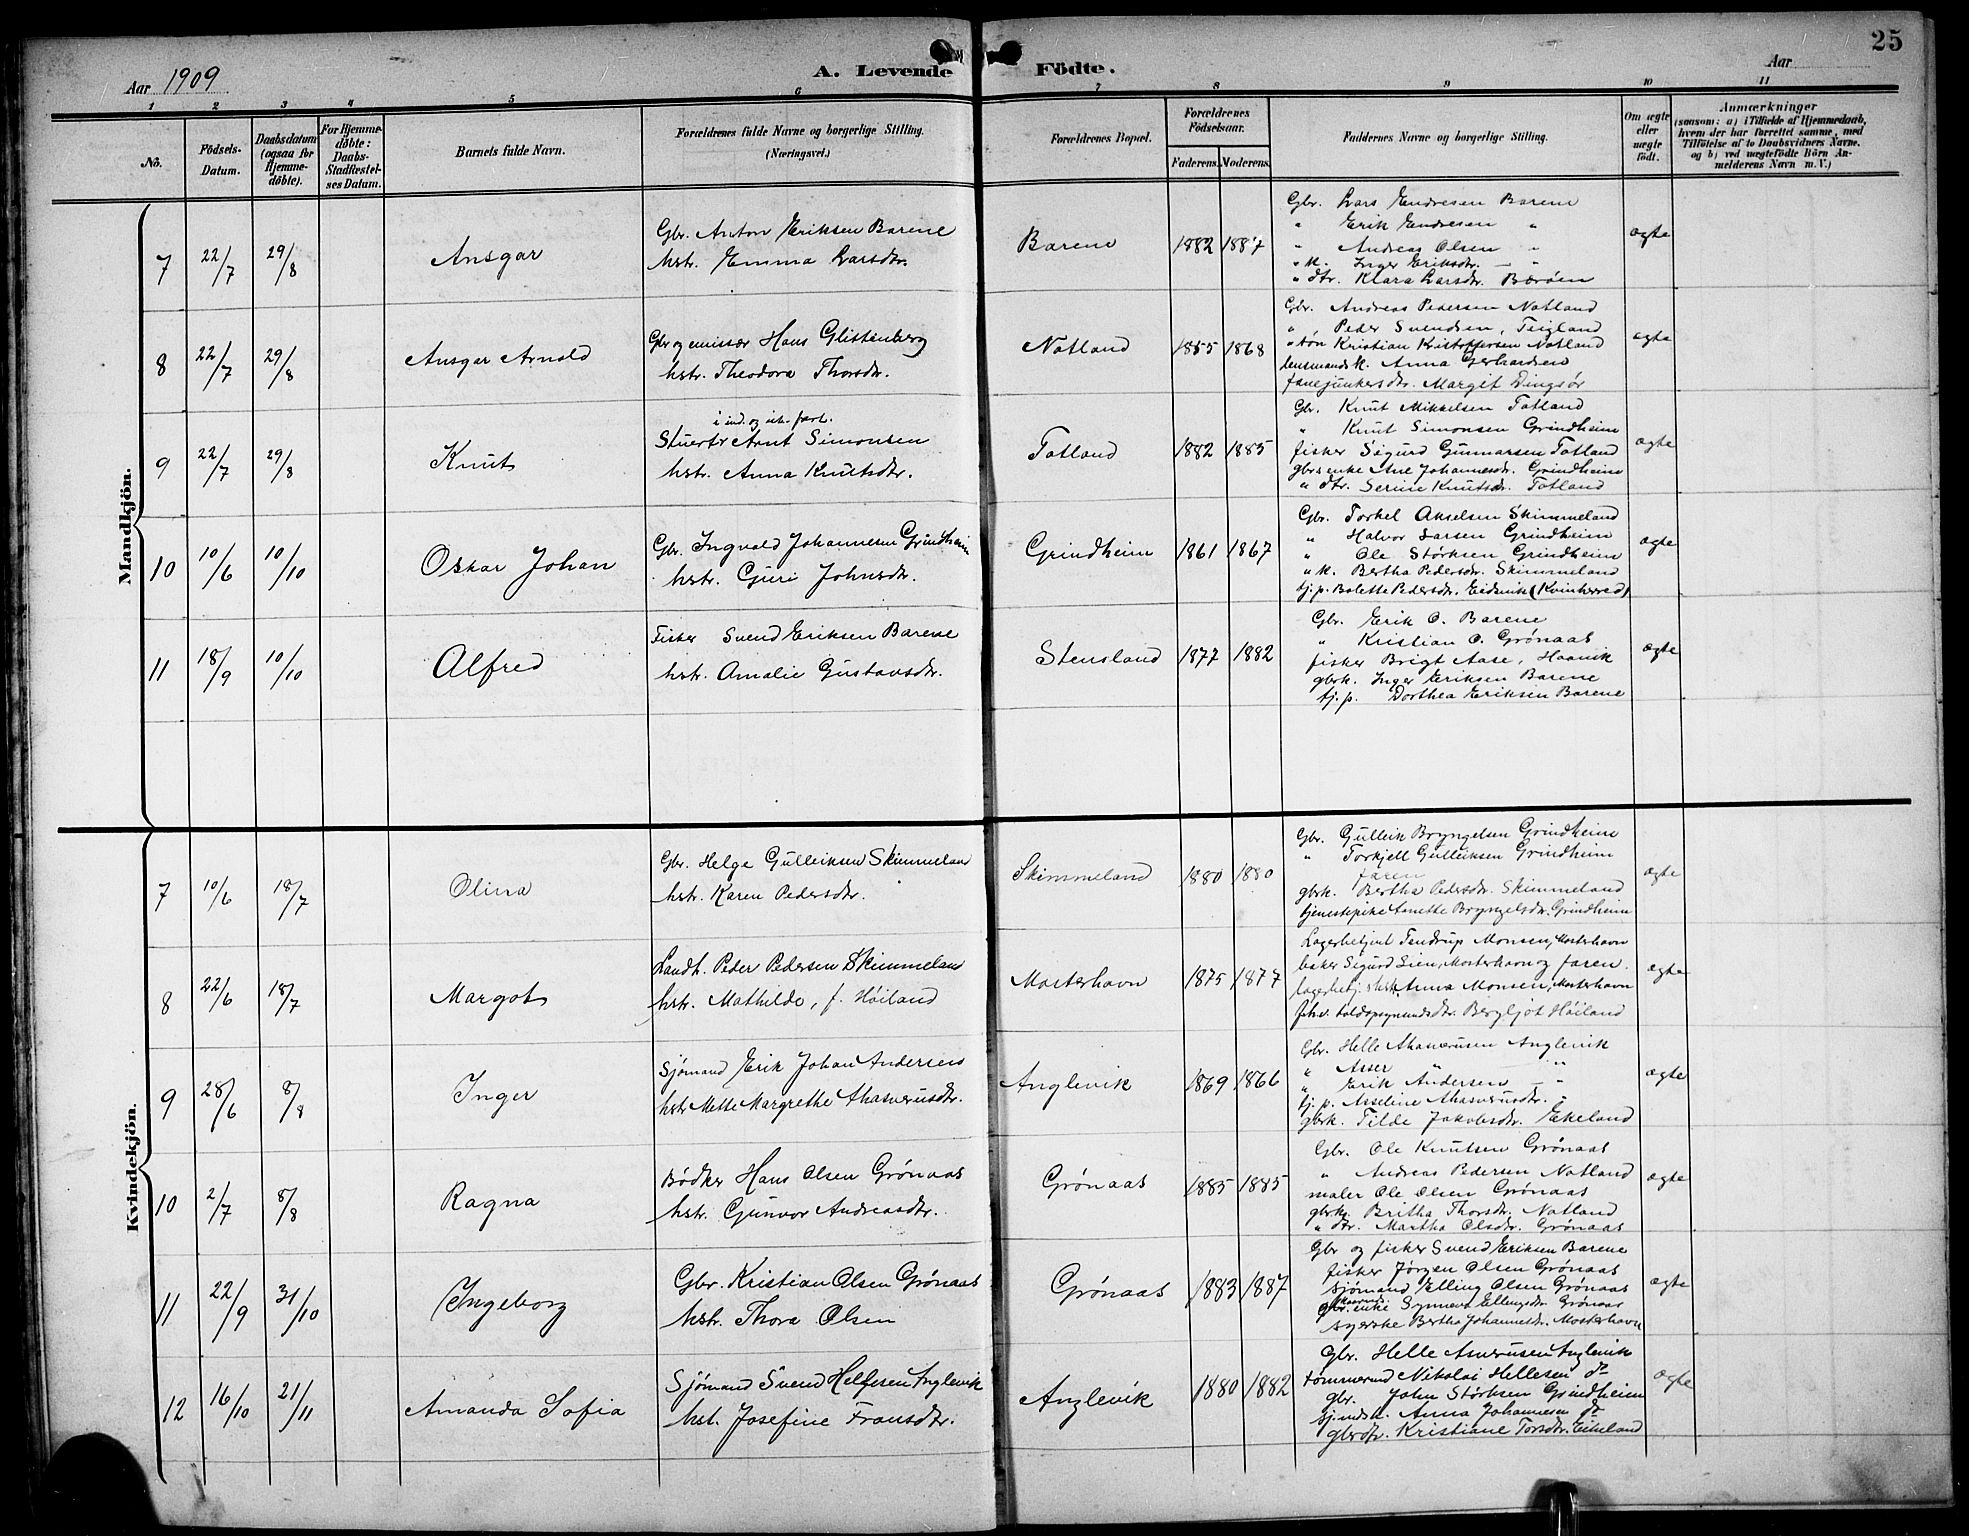 25
Aar 1909
A. Levende Födte.
Aar
1 2 3 4 5 6 7 8 9 10 11
No.
Födsels-Datum.
Daabsdatum (ogsaa for Hjemmedöbte).
For Hjemmedöbte: Daabs-Stadfæstelses Datum.
Barnets fulde Navn.
Forældrenes fulde Navne og borgerlige Stilling. (Næringsvei.)
Forældrenes Bopæl.
Forældrenes Födselsaar.
Faderens. Moderens.
Faddernes Navne og borgerlige Stilling.
Om ægte eller uægte födt.
Anmærkninger
(saasom: a) i Tilfælde af Hjemmedaab, hvem der har forrettet samme, med Tilföielse af to Daabsvidners Navne. og b) ved uægtefödte Börn Anmelderens Navn m. V.)
Mandkjön.
7 22/7 29/8 Ansgar
Gbr. Anton Eriksen Barene
hstr. Emma Larsdtr.
Barene 1882 1887
Gbr. Lars Endresen Barene
" Erik Endresen "
" Andreas Olsen "
" k. Inger Eriksdtr. — "
" dtr. Klara Larsdtr. Børøen
ægte
8 22/7 29/8 Ansgar Arnold
Gbr og emissær Hans Glittenberg
hstr. Theodora Thorsdtr.
Notland 1855 1868
Gbr. Andreas Pedersen Notland
" Peder Svendsen, Teigland
" søn Kristian Kristoffersen Notland
lensmandsk. Anna Gerhardsen
fanejunkersdtr. Margit Dingsör
ægte
9 22/7 29/8 Knut
i ind. og utr. fart.
Stuert Arnt Simonsen
hstr. Anna Knutsdtr.
Totland 1882 1885
Gbr. Knut Mikkelsen Totland
" Knut Simonsen Grindheim
fisker Sigurd Gunnarsen Totland
gbrs enke Ane Johannesdr. Grindheim
" dtr. Serine Knutsdr. Totland
ægte
10 10/6 10/10 Oskar Johan
Gbr. Ingvald Johannesen Grindheim
hstr. Guri Johnsdtr.
Grindheim 1861 1867
Gbr. Torkel Akselsen Skimmeland
" Halvor Larsen Grindheim
" Ole Størksen Grindheim
" k. Bertha Pedersdtr. Skimmeland
tj. p. Bolette Pedersdtr. Eidsvik (Kvinherred)
ægte
11 18/9 10/10 Alfred
Fisker Svend Eriksen Barene
hstr. Amalie Gustavsdtr.
Stensland 1877 1882
Gbr. Erik O. Barene
" Kristian O. Grønaas
fisker Brigt Aase, Haavik
gbrk. Inger Eriksen Barene
tj. p. Dorthea Eriksen Barene
ægte
Kvindekjön.
7 10/6 18/7 Olina
Gbr. Helge Gulleiksen Skimmeland
hstr. Karen Pedersdtr.
Skimmeland 1880 1880
Gbr. Gulleik Bryngelsen Grindheim
" Torkjell Gulleiksen Grindheim
faren
gbrk. Bertha Pedersdtr. Skimmeland
tjenestepike Anette Bryngelsdtr. Grindheim
ægte
8 22/6 18/7 Margot
Landh. Peder Pedersen Skimmeland
hstr. Mathilde, f. Høiland
Mosterhavn 1875 1877
Lagerbetjent Tendrup Monsen, Mosterhavn
baker Sigurd Lien, Mosterhavn og faren.
lagerbetj. hstr. Anna Monsen, Mosterhavn
toldopsynsmdsdtr. Bergljot Høiland
ægte
9 28/6 8/8 Inger
Sjømand Erik Johan Andersen
hstr. Mette Margrethe Ahasverusdtr.
Anglevik 1869 1866
Gbr. Helle Ahasverusen Anglevik
" Asser " — "
" Erik Andersen — "
tj. p. Asseline Ahasverusdtr. — "
gbrk. Tilde Jakobsdtr. Ekeland
ægte
10 2/7 8/8 Ragna
Bødker Hans Olsen Grønaas
hstr. Gunvor Andreasdtr.
Grønaas 1885 1885
Gbr. Ole Knutsen Grønaas
" Andreas Pedersen Notland
maler Ole Olsen Grønaas
gbrk. Britha Thorsdtr. Notland
" dtr. Martha Olsdtr. Grønaas
ægte
11 22/9 31/10 Ingeborg
Gbr. Kristian Olsen Grønaas
hstr. Thora Olsen
Grønaas 1883 1887
Gbr og fisker Svend Eriksen Barene
fisker Jørgen Olsen Grønaas
sjømand Elling Olsen Grønaas
enke Synneva Ellingsdtr. Grønaas
syerske Bertha Johannesdtr. Mosterhavn
ægte
12 16/10 21/11 Amanda Sofia
Sjømand Svend Hellesen Anglevik
hst. Josefine Fransdtr.
Anglevik 1880 1882
Gbr. Helle Asverusen Anglevik
tømmermd Nikolai Hellesen do
gbr. John Størksen Grindheim
sjmdsk. Anna Johannesen do
gbrdtr. Kristiane Torsdtr. Eikeland
ægte